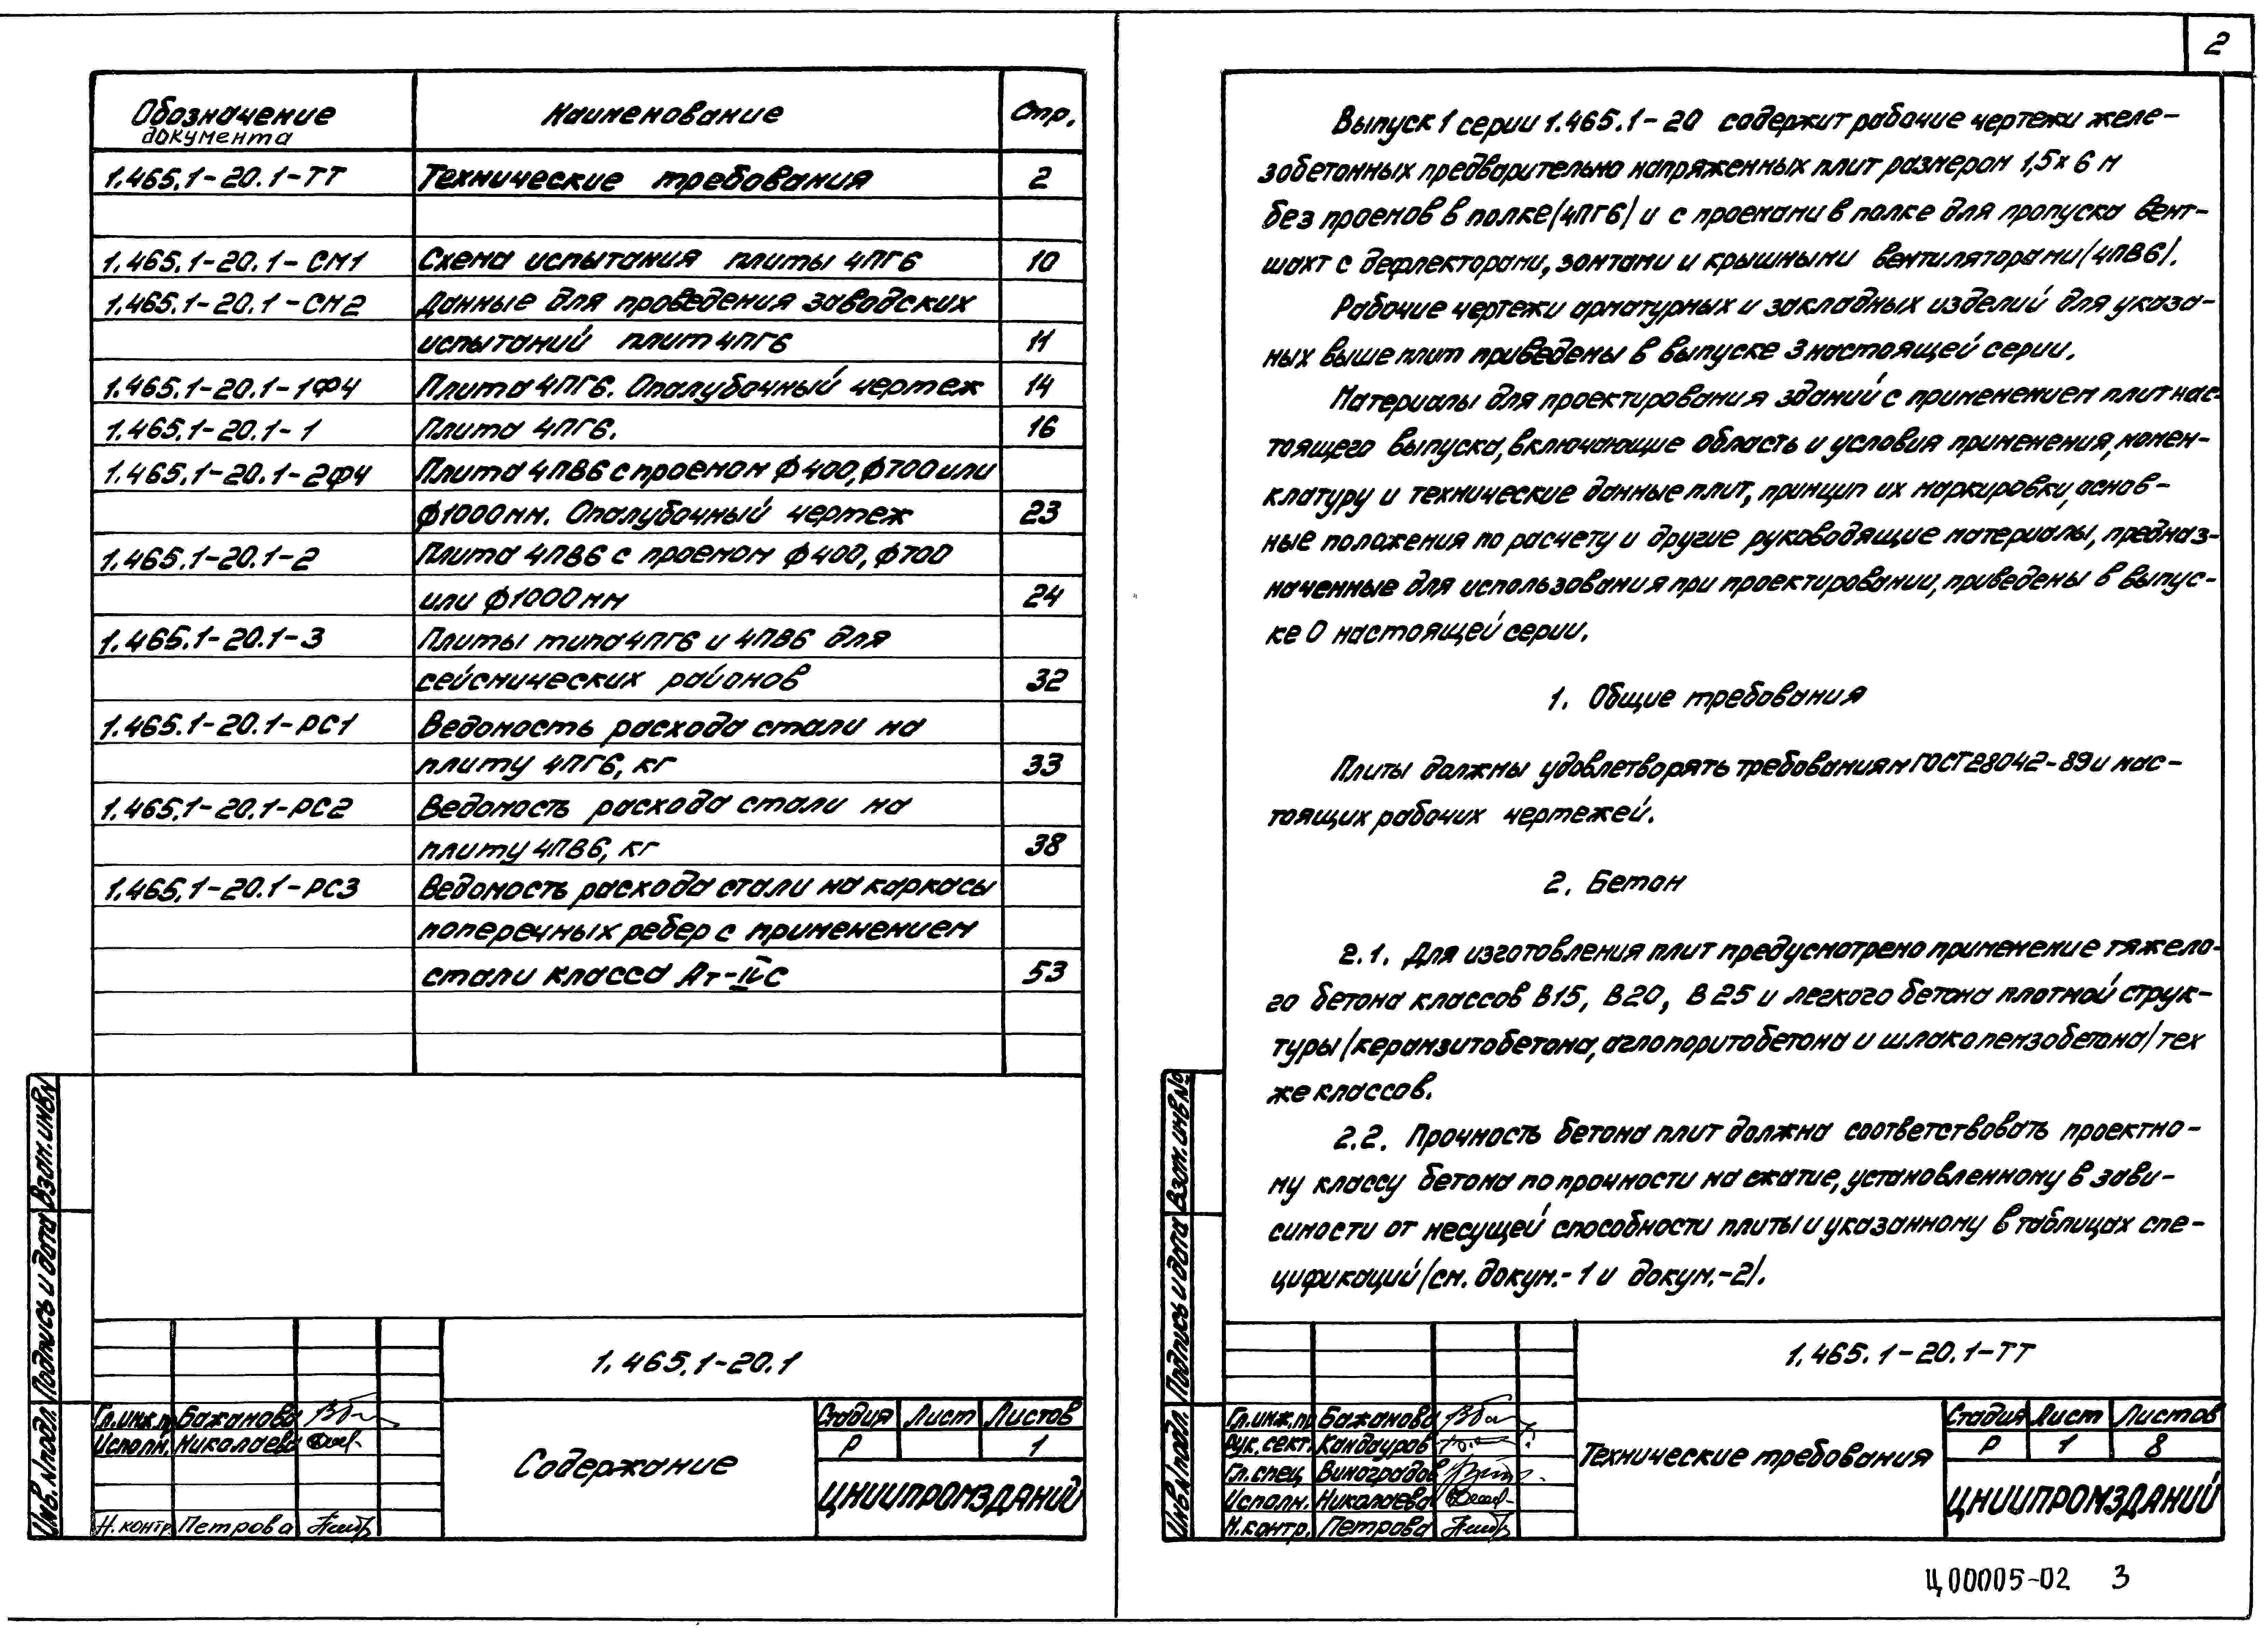 Обозначение документа Наименование Стр.
1.465.1-20.1-ТТ Технические требования 2
1.465.1-20.1-СМ1 Схема испытания плиты 4ПГ6 10
1.465.1-20.1-СМ2 Данные для проведения заводских
испытаний плит 4ПГ6 11
1.465.1-20.1-1ФЧ Плита 4ПГ6. Опалубочный чертеж 14
1.465.1-20.1-1 Плита 4ПГ6. 16
1.465.1-20.1-2ФЧ Плита 4ПВ6 с проемом ϕ400, ϕ700 или
ϕ1000мм. Опалубочный чертеж 23
1.465.1-20.1-2 Плита 4ПВ6 с проемом ϕ400, ϕ700
или ϕ1000мм 24
1.465.1-20.1-3 Плиты типа 4ПГ6 и 4ПВ6 для
сейсмических районов 32
1.465.1-20.1-РС1 Ведомость расхода стали на
плиту 4ПГ6, кг 33
1.465.1-20.1-РС2 Ведомость расхода стали на
плиту 4ПВ6, кг 38
1.465.1-20.1-РС3 Ведомость расхода стали на каркасы
поперечных ребер с применением
стали класса Ат-IVс 53
Инв.N подл Подпись и дата Взам.инвN
1.465.1-20.1
Гл.инж.пр Бажанова
Исполн. Николаева
Н.контр Петрова
Содержание
Стадия Лист Листов
Р 1
ЦНИИПРОМЗДАНИЙ
2
Выпуск 1 серии 1.465.1-20 содержит рабочие чертежи желе-
зобетонных предварительно напряженных плит размером 1,5х6 м
без проемов в полке/4ПГ6/ и с проемами в полке для пропуска вент-
шахт с дефлекторами, зонтами и крышными вентиляторами/4ПВ6/.
Рабочие чертежи арматурных и закладных изделий для указа-
ных выше плит приведены в выпуске 3 настоящей серии.
Материалы для проектирования зданий с применением плит нас-
тоящего выпуска, включающие область и условия применения, номен-
клатуру и технические данные плит, принцип их маркировки, основ-
ные положения по расчету и другие руководящие материалы, предназ-
наченные для использования при проектировании, приведены в выпус-
ке 0 настоящей серии.
1. Общие требования
Плиты должны удовлетворять требованиям ГОСТ 28042-89 и нас-
тоящих рабочих чертежей.
2. Бетон
2.1. Для изготовления плит предусмотрено применение тяжело-
го бетона классов В15, В20, В25 и легкого бетона плотной струк-
туры/керамзитобетона, аглопоритобетона и шлакопемзобетона/тех
же классов.
2.2. Прочность бетона плит должна соответствовать проектно-
му классу бетона по прочности на сжатие, установленному в зави-
симости от несущей способности плиты и указанному в таблицах спе-
цификаций/см. докум.-1 и докум.-2/.
Инв.N подл. Подпись и дата Взам.инв№
1.465.1-20.1-ТТ
Гл.инж.пр Бажанова
Рук.сект. Кандауров
Гл.спец Виноградов
Исполн. Николаева
Н.контр. Петрова
Технические требования
Стадия Лист Листов
Р 1 8
ЦНИИПРОМЗДАНИЙ
Ц00005-02 3